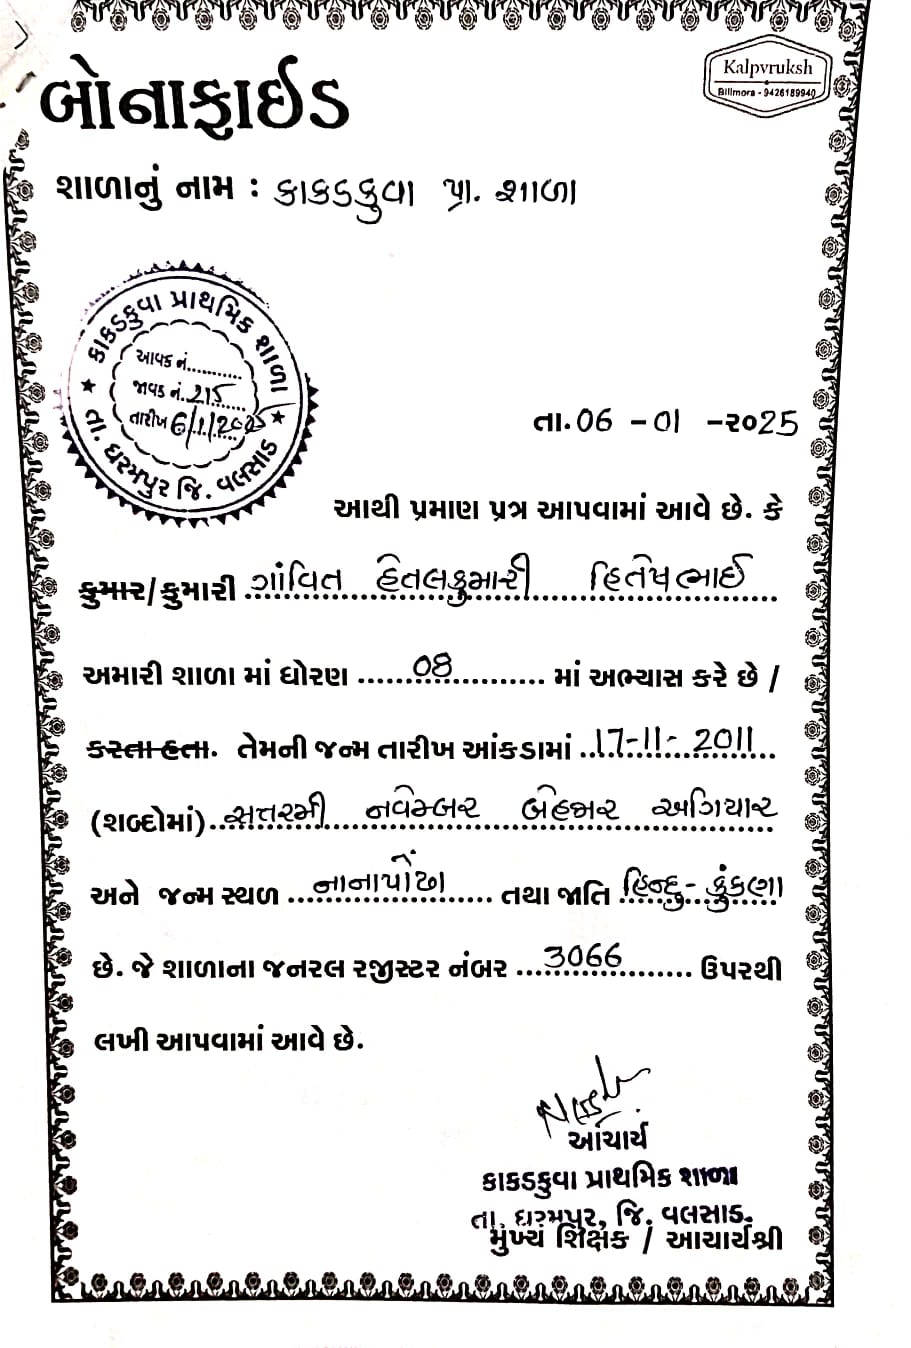 Kalpvruksh
Billmora - 9426189940
બોનાફાઈડ
શાળાનું નામ : કાકડકુવા પ્રા. શાળા
કાકડકુવા પ્રાથમિક શાળા
આવક નં..........
જાવક નં. 215
તારીખ 6/1/2025
★ તા. ધરમપુર જિ. વલસાડ ★
તા. 06 - 01 - ૨૦25
આથી પ્રમાણ પત્ર આપવામાં આવે છે. કે
કુમાર/કુમારી ગાંવિત હેતલકુમારી હિતેષભાઈ
અમારી શાળા માં ધોરણ ......08............ માં અભ્યાસ કરે છે /
કરતા હતા. તેમની જન્મ તારીખ આંકડામાં ..17-11- 2011
(શબ્દોમાં)..સત્તરમી નવેમ્બર બેહજાર અગિયાર
અને જન્મ સ્થળ ...નાનાપોંઢા....... તથા જાતિ હિન્દુ- કુંકણા
છે. જે શાળાના જનરલ રજીસ્ટર નંબર ....3066......... ઉપરથી
લખી આપવામાં આવે છે.
આચાર્ય
કાકડકુવા પ્રાથમિક શાળા
તા. ધરમપુર, જિ. વલસાડ.
મુખ્ય શિક્ષક / આચાર્યશ્રી